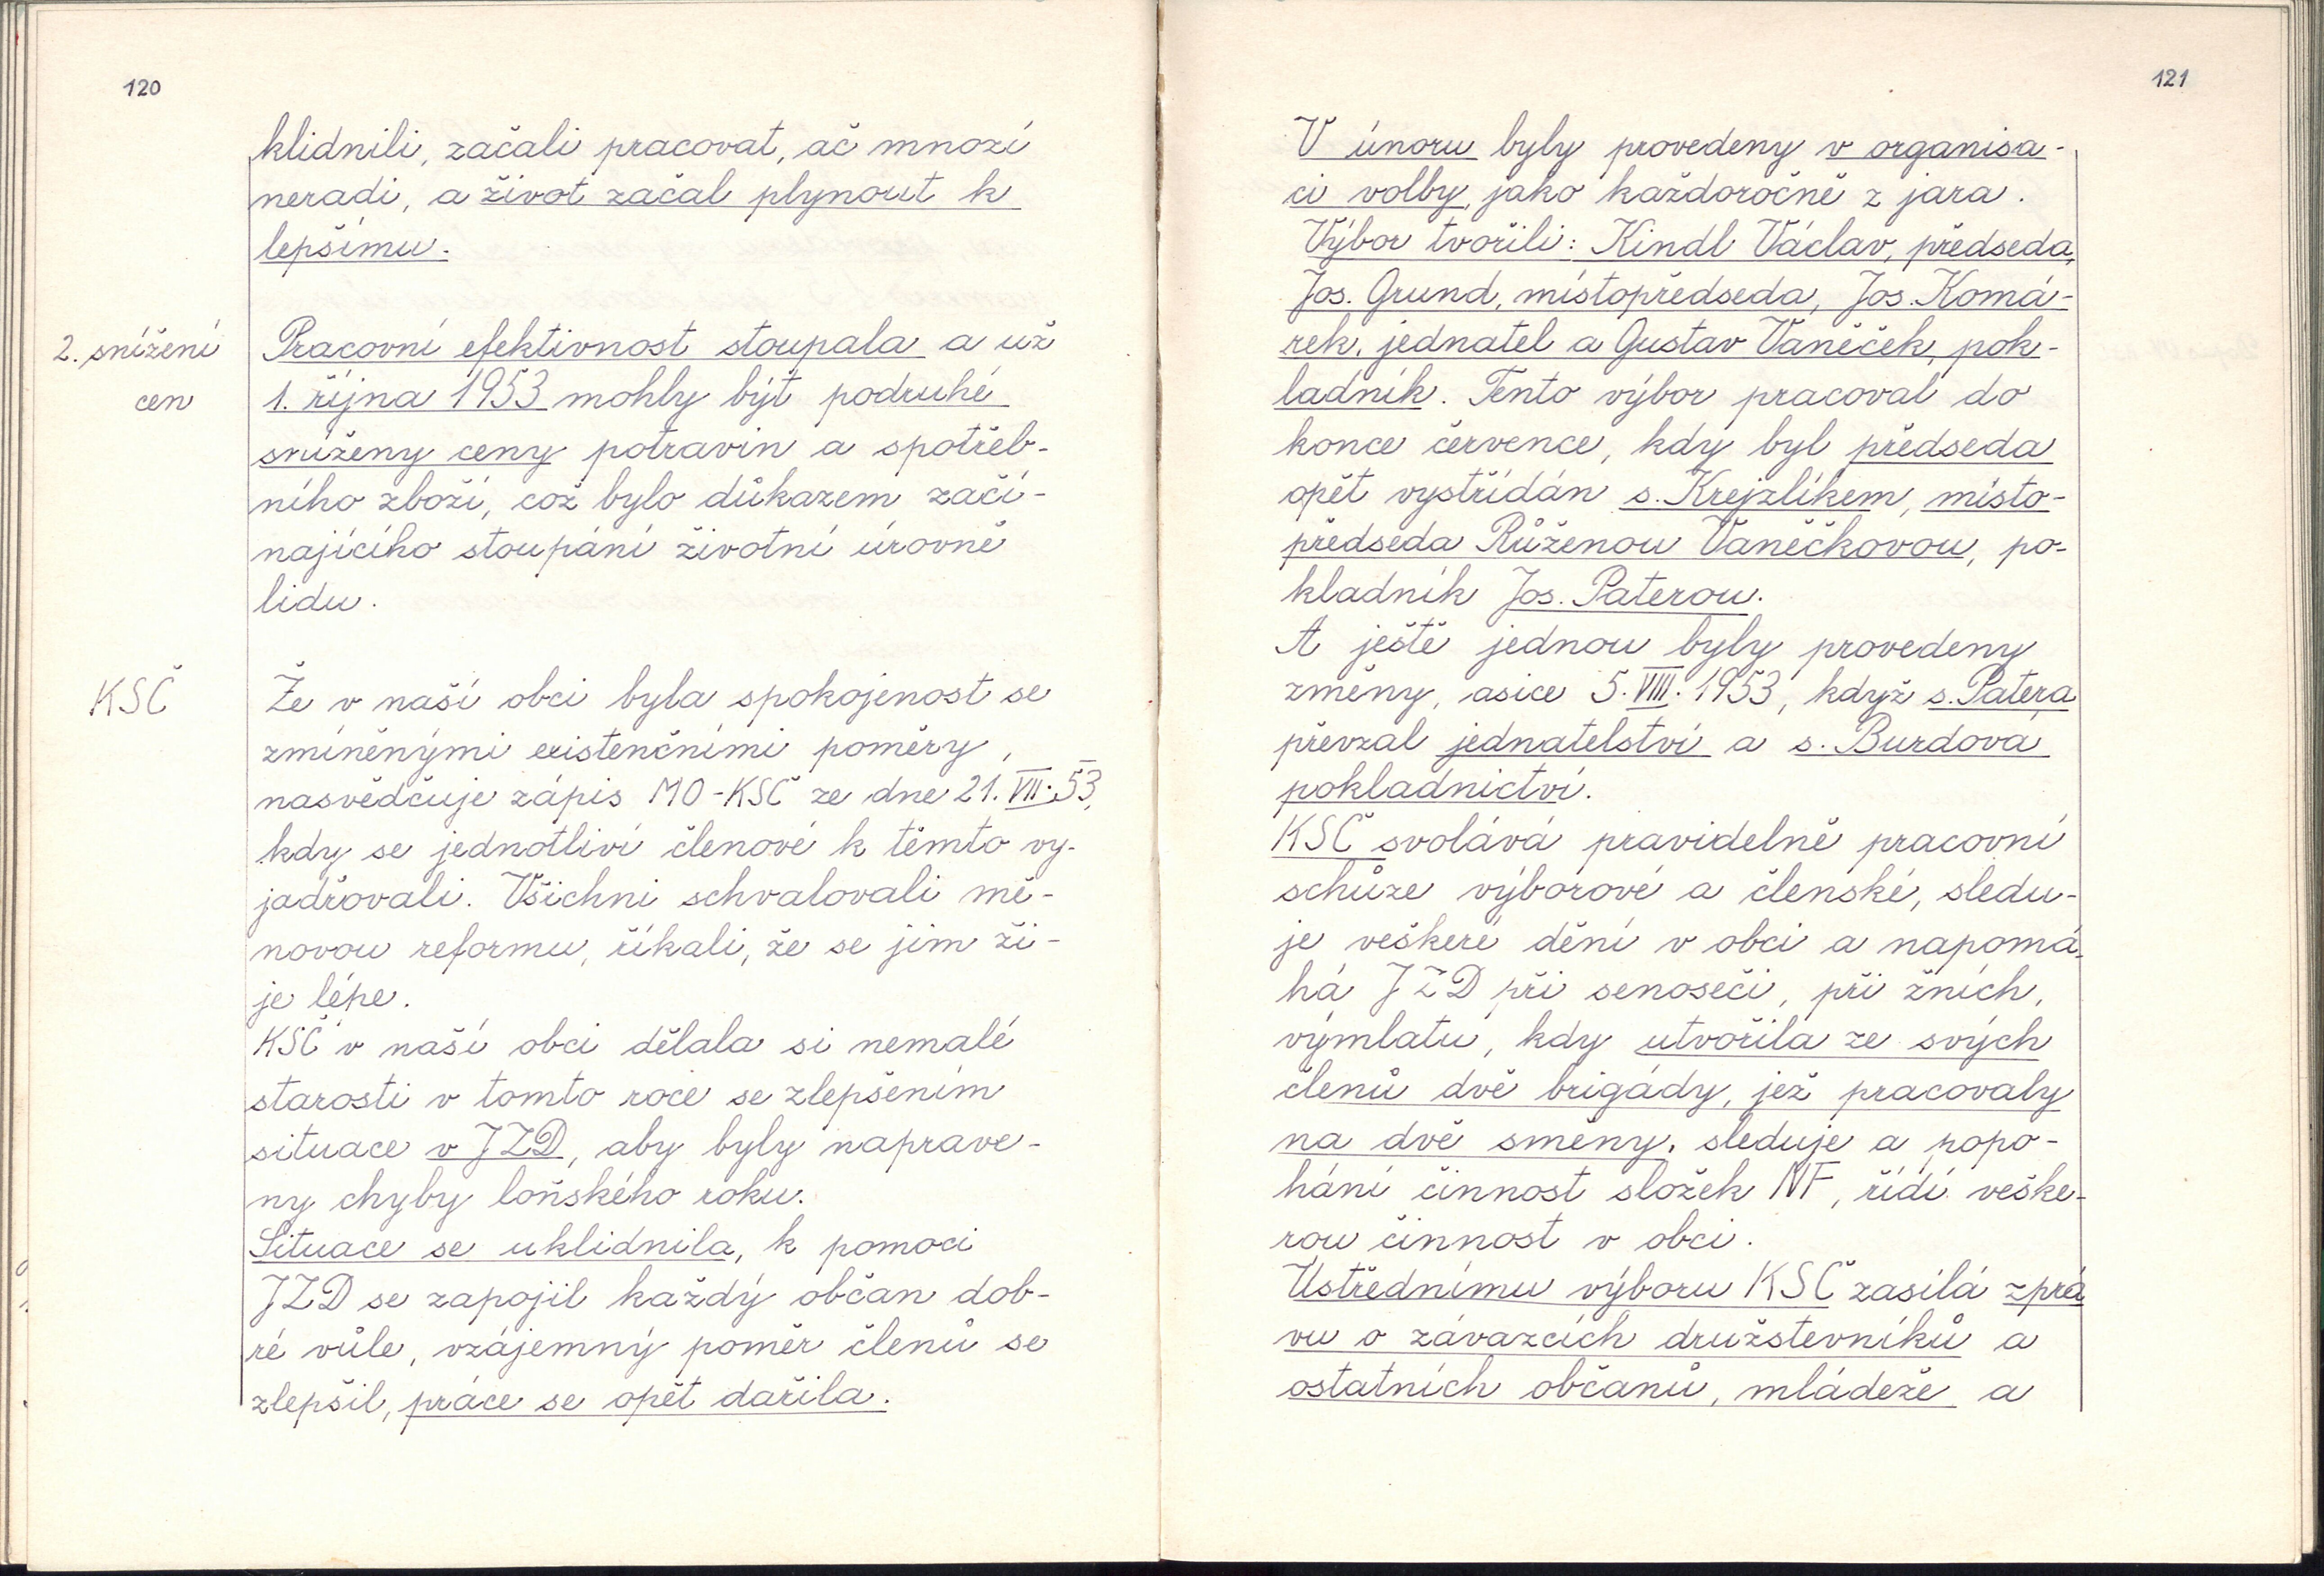 120
klidnili, začali pracovat, ač mnozí
neradi, a život začal plynout k
lepšímu.
2. snížení
cen
Pracovní efektivnost stoupala a už
1. října 1953 mohly být podruhé
sníženy ceny potravin a spotřeb-
ního zboží, což bylo důkazem začí-
najícího stoupání životní úrovně
lidu.
KSČ
Že v naší obci byla spokojenost se
zmíněnými existenčními poměry,
nasvědčuje zápis MO-KSČ ze dne 21. VII. 53,
kdy se jednotliví členové k těmto vy-
jadřovali. Všichni schvalovali mě-
novou reformu, říkali, že se jim ži-
je lépe.
KSČ v naší obci dělala si nemalé
starosti v tomto roce se zlepšením
situace v JZD, aby byly naprave-
ny chyby loňského roku.
Situace se uklidnila, k pomoci
JZD se zapojil každý občan dob-
ré vůle, vzájemný poměr členů se
zlepšil, práce se opět dařila.
121
V únoru byly provedeny v organisa-
ci volby, jako každoročně z jara.
Výbor tvořili: Kindl Václav, předseda,
Jos. Grund, místopředseda, Jos. Komá-
rek, jednatel a Gustav Vaněček, pok-
ladník. Tento výbor pracoval do
konce července, kdy byl předseda
opět vystřídán s. Krejzlíkem, místo-
předseda Růženou Vaněčkovou, po-
kladník Jos. Paterou.
A ještě jednou byly provedeny
změny, asice 5. VIII. 1953, když s. Patera
převzal jednatelství a s. Burdová
pokladnictví.
KSČ svolává pravidelně pracovní
schůze výborové a členské, sledu-
je veškeré dění v obci a napomá-
há JZD při senoseči, při žních,
výmlatu, kdy utvořila ze svých
členů dvě brigády, jež pracovaly
na dvě směny, sleduje a popo-
hání činnost složek NF, řídí veške-
rou činnost v obci.
Ústřednímu výboru KSČ zasílá zprá
vu o závazcích družstevníků a
ostatních občanů, mládeže a